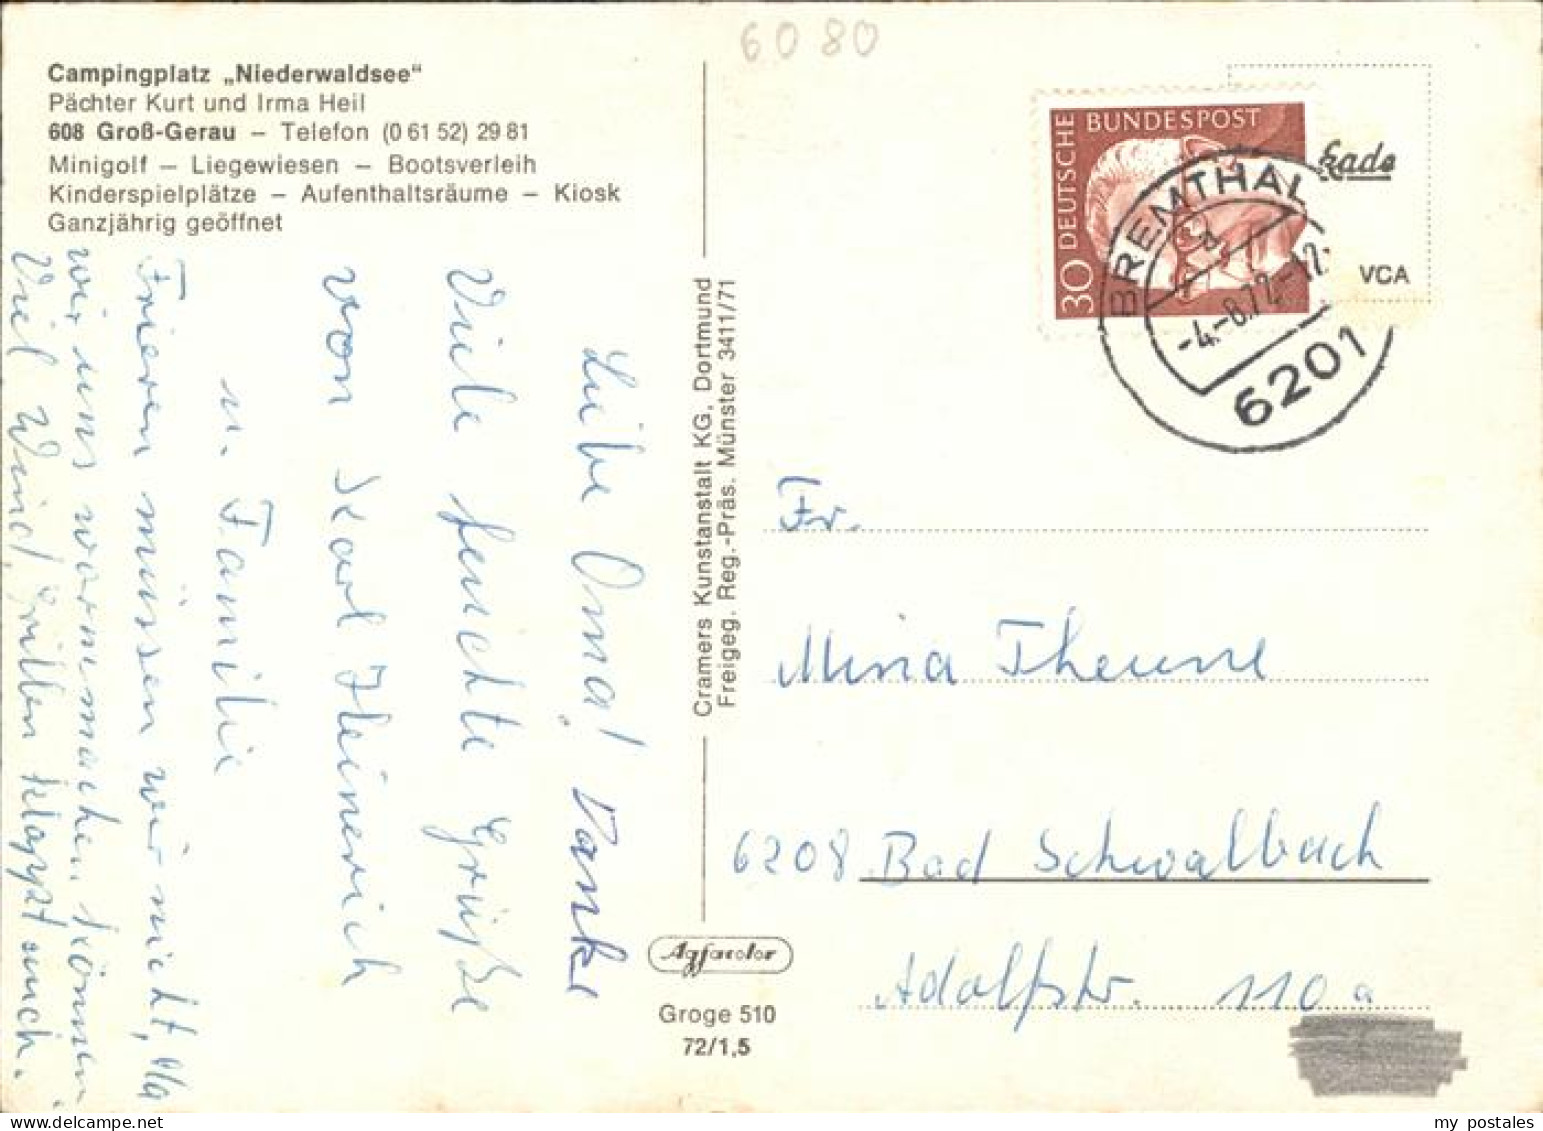 6080
Campingplatz „Niederwaldsee“
Pächter Kurt und Irma Heil
608 Groß-Gerau – Telefon (0 61 52) 29 81
Minigolf – Liegewiesen – Bootsverleih
Kinderspielplätze – Aufenthaltsräume – Kiosk
Ganzjährig geöffnet
Liebe Oma! Danke
Viele feuchte Grüße
von Karl Heinerich
u. Familie
Frieren müssen wir nicht, da
wir uns warm machen können.
Viel Wind, Grillen klappt auch.
Cramers Kunstanstalt KG, Dortmund
Freigeg. Reg.-Präs. Münster 3411/71
Agfacolor
Groge 510
72/1,5
DEUTSCHE BUNDESPOST
30
BREMTHAL
d
-4.-8.72.-12
6201
VCA
Fr.
Mina Theune
6208 Bad Schwalbach
Adolfstr. 110 a
my postales